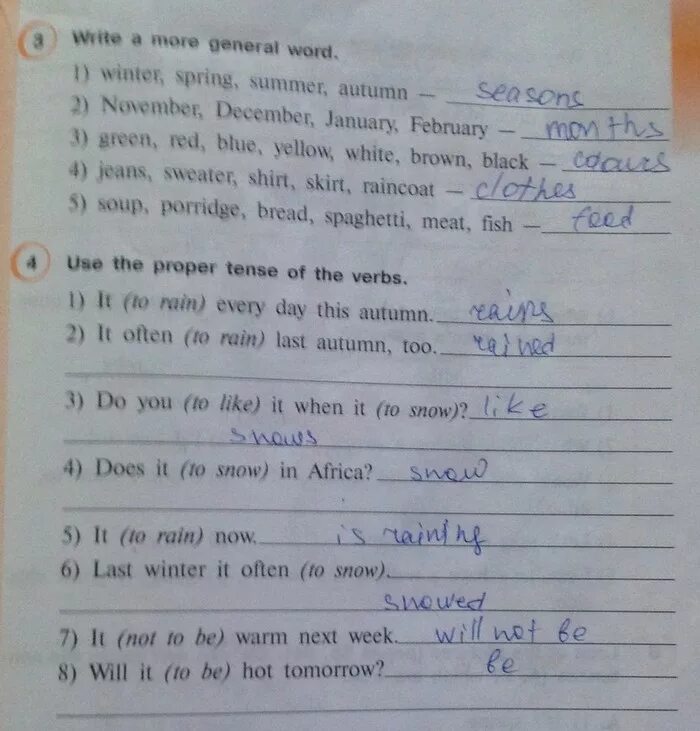 3 Write a more general word.
1) winter, spring, summer, autumn — seasons
2) November, December, January, February — months
3) green, red, blue, yellow, white, brown, black — colours
4) jeans, sweater, shirt, skirt, raincoat — clothes
5) soup, porridge, bread, spaghetti, meat, fish — feed
4 Use the proper tense of the verbs.
1) It (to rain) every day this autumn. rains
2) It often (to rain) last autumn, too. rained
3) Do you (to like) it when it (to snow)? like
snows
4) Does it (to snow) in Africa? snow
5) It (to rain) now. is raining
6) Last winter it often (to snow).
snowed
7) It (not to be) warm next week. will not be
8) Will it (to be) hot tomorrow? be